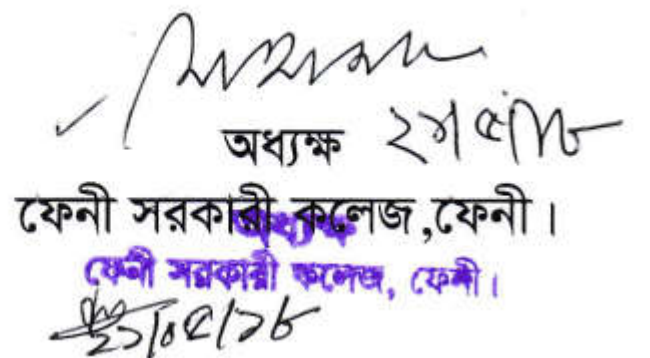 অধ্যক্ষ
ফেনী সরকারী কলেজ,ফেনী।
অধ্যক্ষ
ফেনী সরকারী কলেজ, ফেনী।
২১/০৫/১৮